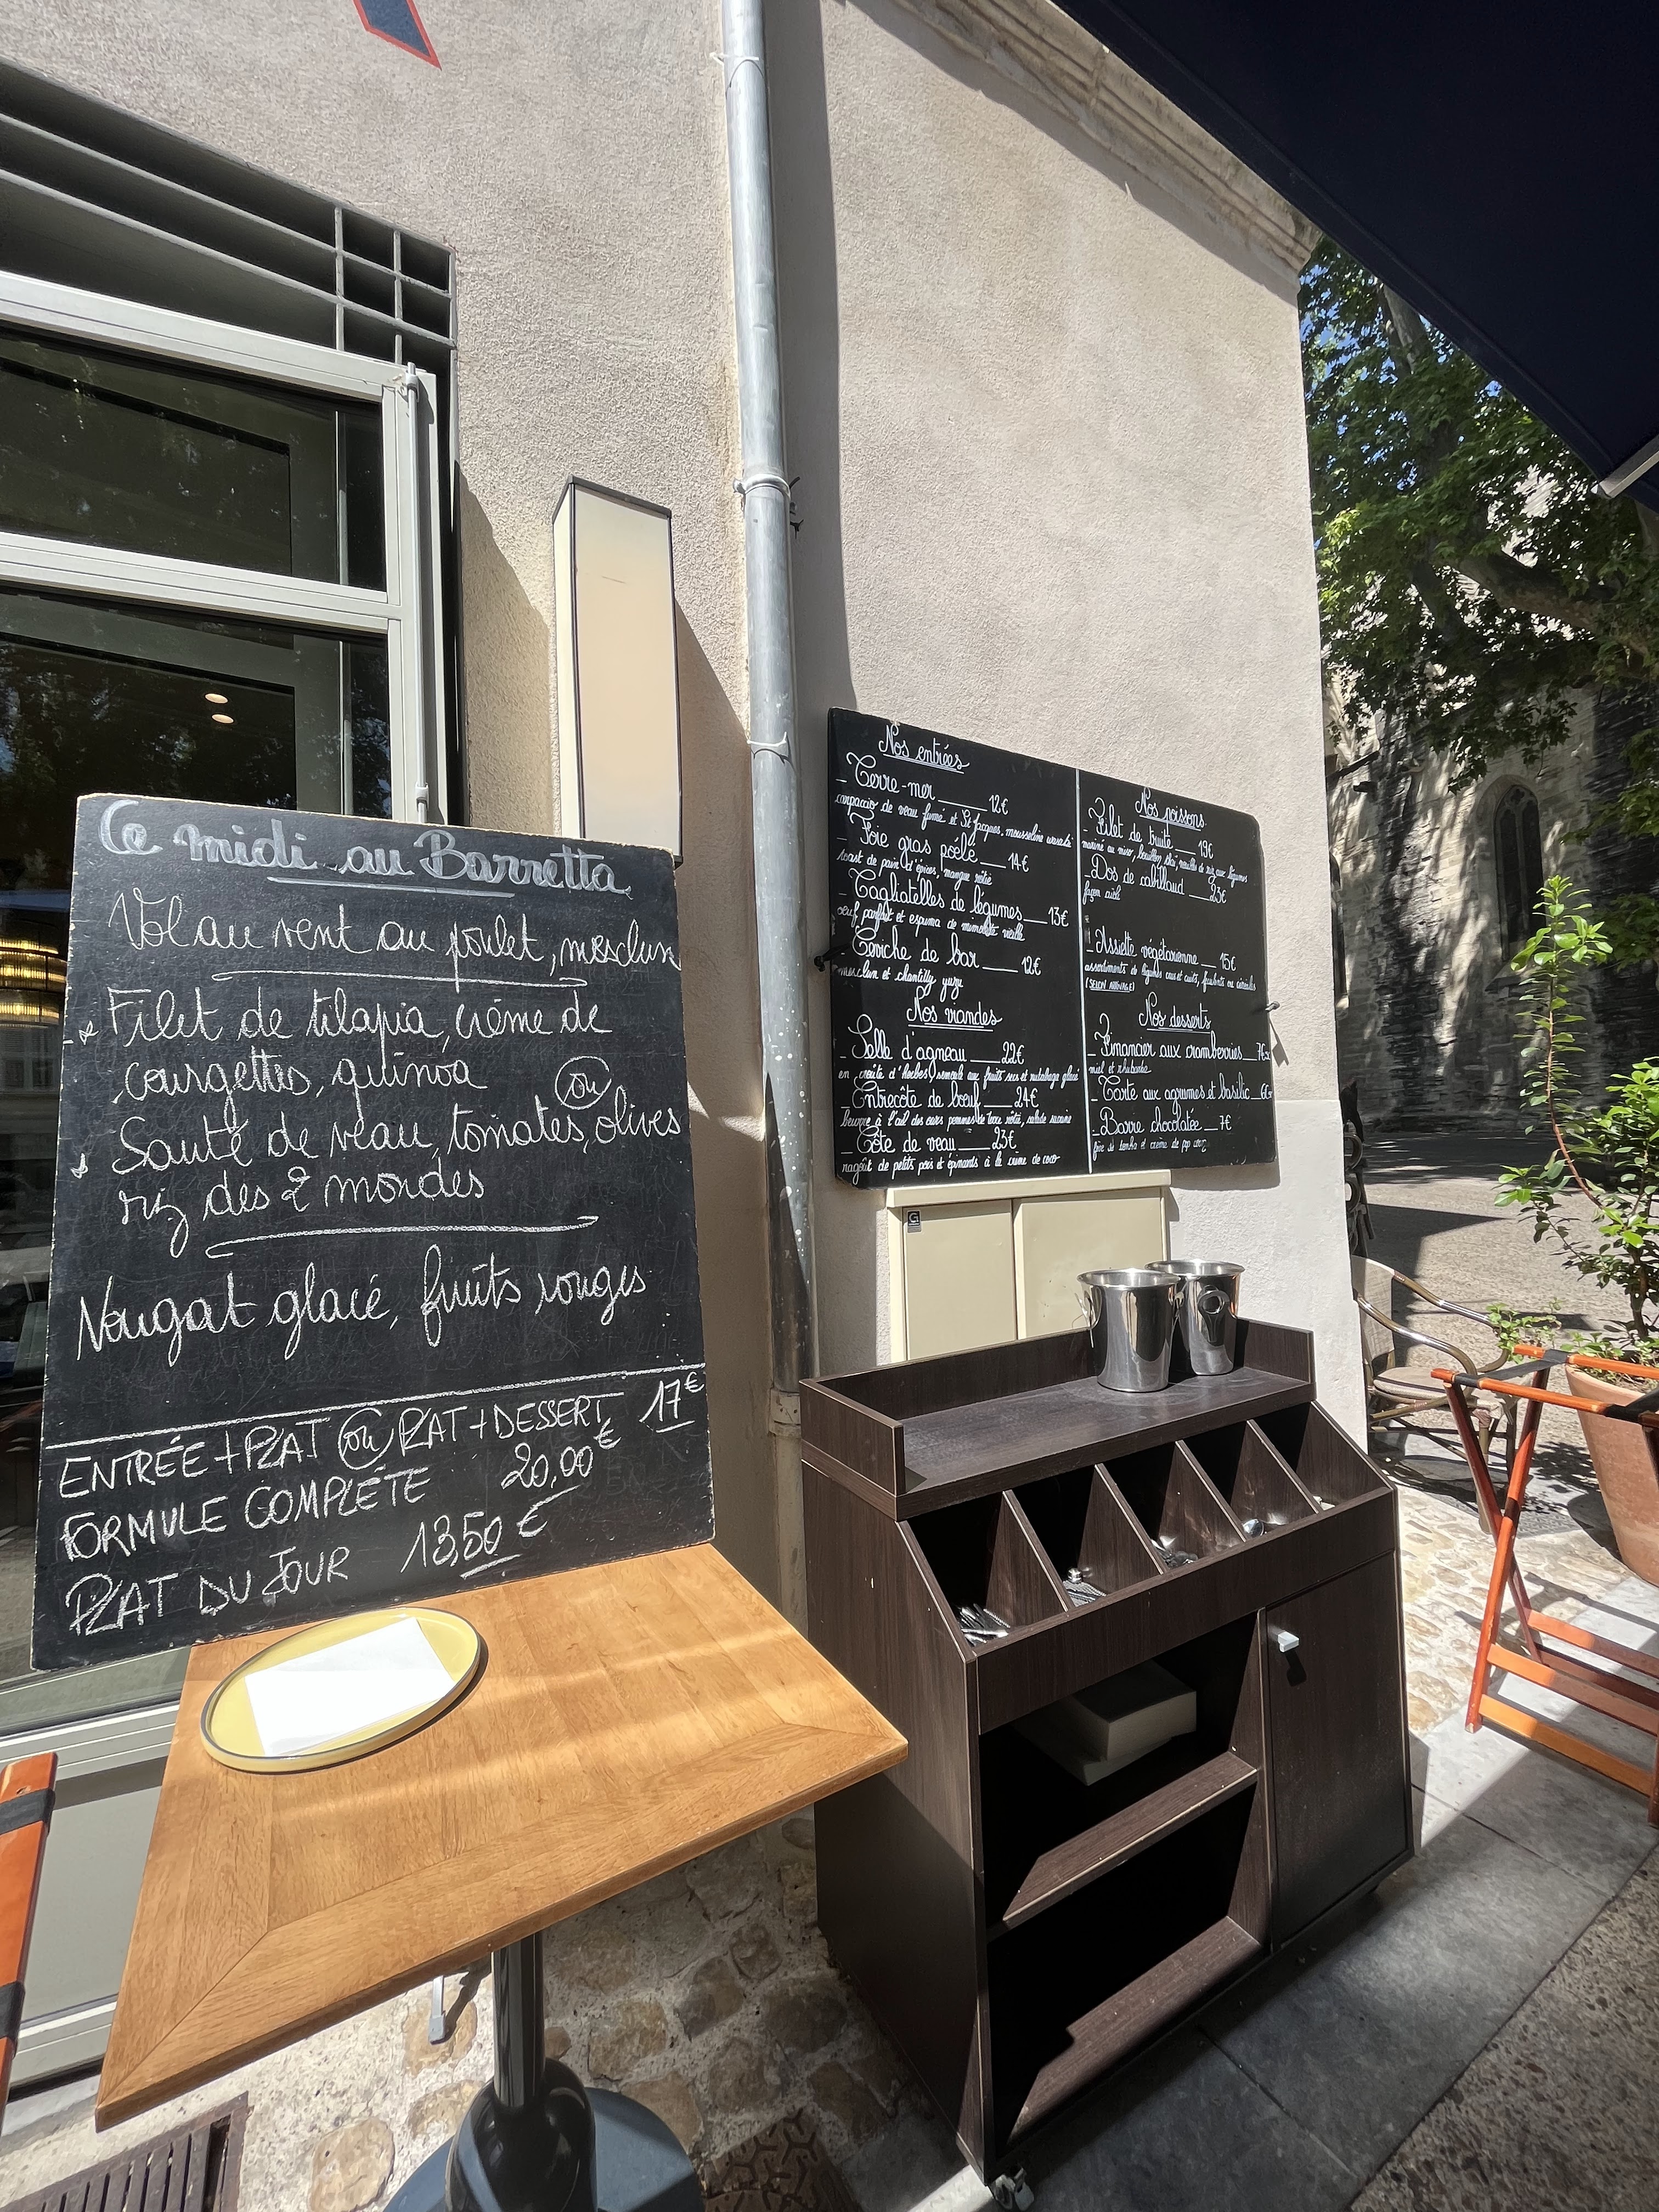 Ce midi au Barretta
Vol au vent au poulet, mesclun
Filet de tilapia, crème de
courgettes, quinoa
ou
Sauté de veau, tomates, olives
riz des 2 mondes
Nougat glacé, fruits rouges
ENTRÉE + PLAT ou PLAT + DESSERT 17€
FORMULE COMPLÈTE 20,00€
PLAT DU JOUR 13,50€
Nos entrées
- Terre-mer 12€
carpaccio de veau fumé et St Jacques, mousseline
- Foie gras poêlé 14€
toast de pain d'épices, mangue rôtie
- Tagliatelles de légumes 13€
oeuf parfait et espuma de mimolette vieille
- Ceviche de bar 12€
mesclun et chantilly yuzu
Nos viandes
- Selle d'agneau 22€
en croûte d'herbes, semoule aux fruits secs et rutabaga glacé
- Entrecôte de boeuf 24€
beurre à l'ail des ours pommes de terre rôtie, salade sucrine
- Côte de veau 23€
ragoût de petits pois et épinards à la crème de coco
Nos poissons
- Filet de truite 19€
mariné au miso, bouillon thaï, nouilles de riz aux légumes
- Dos de cabillaud 23€
façon aïoli
- Assiette végétarienne 15€
assortiments de légumes crus et cuits, féculents ou céréales
(SELON ARRIVAGE)
Nos desserts
- Financier aux cramberries 7€
miel et rhubarbe
- Tarte aux agrumes et basilic 6€
- Barre chocolatée 7€
fève de tonka et crème de pop corn
G